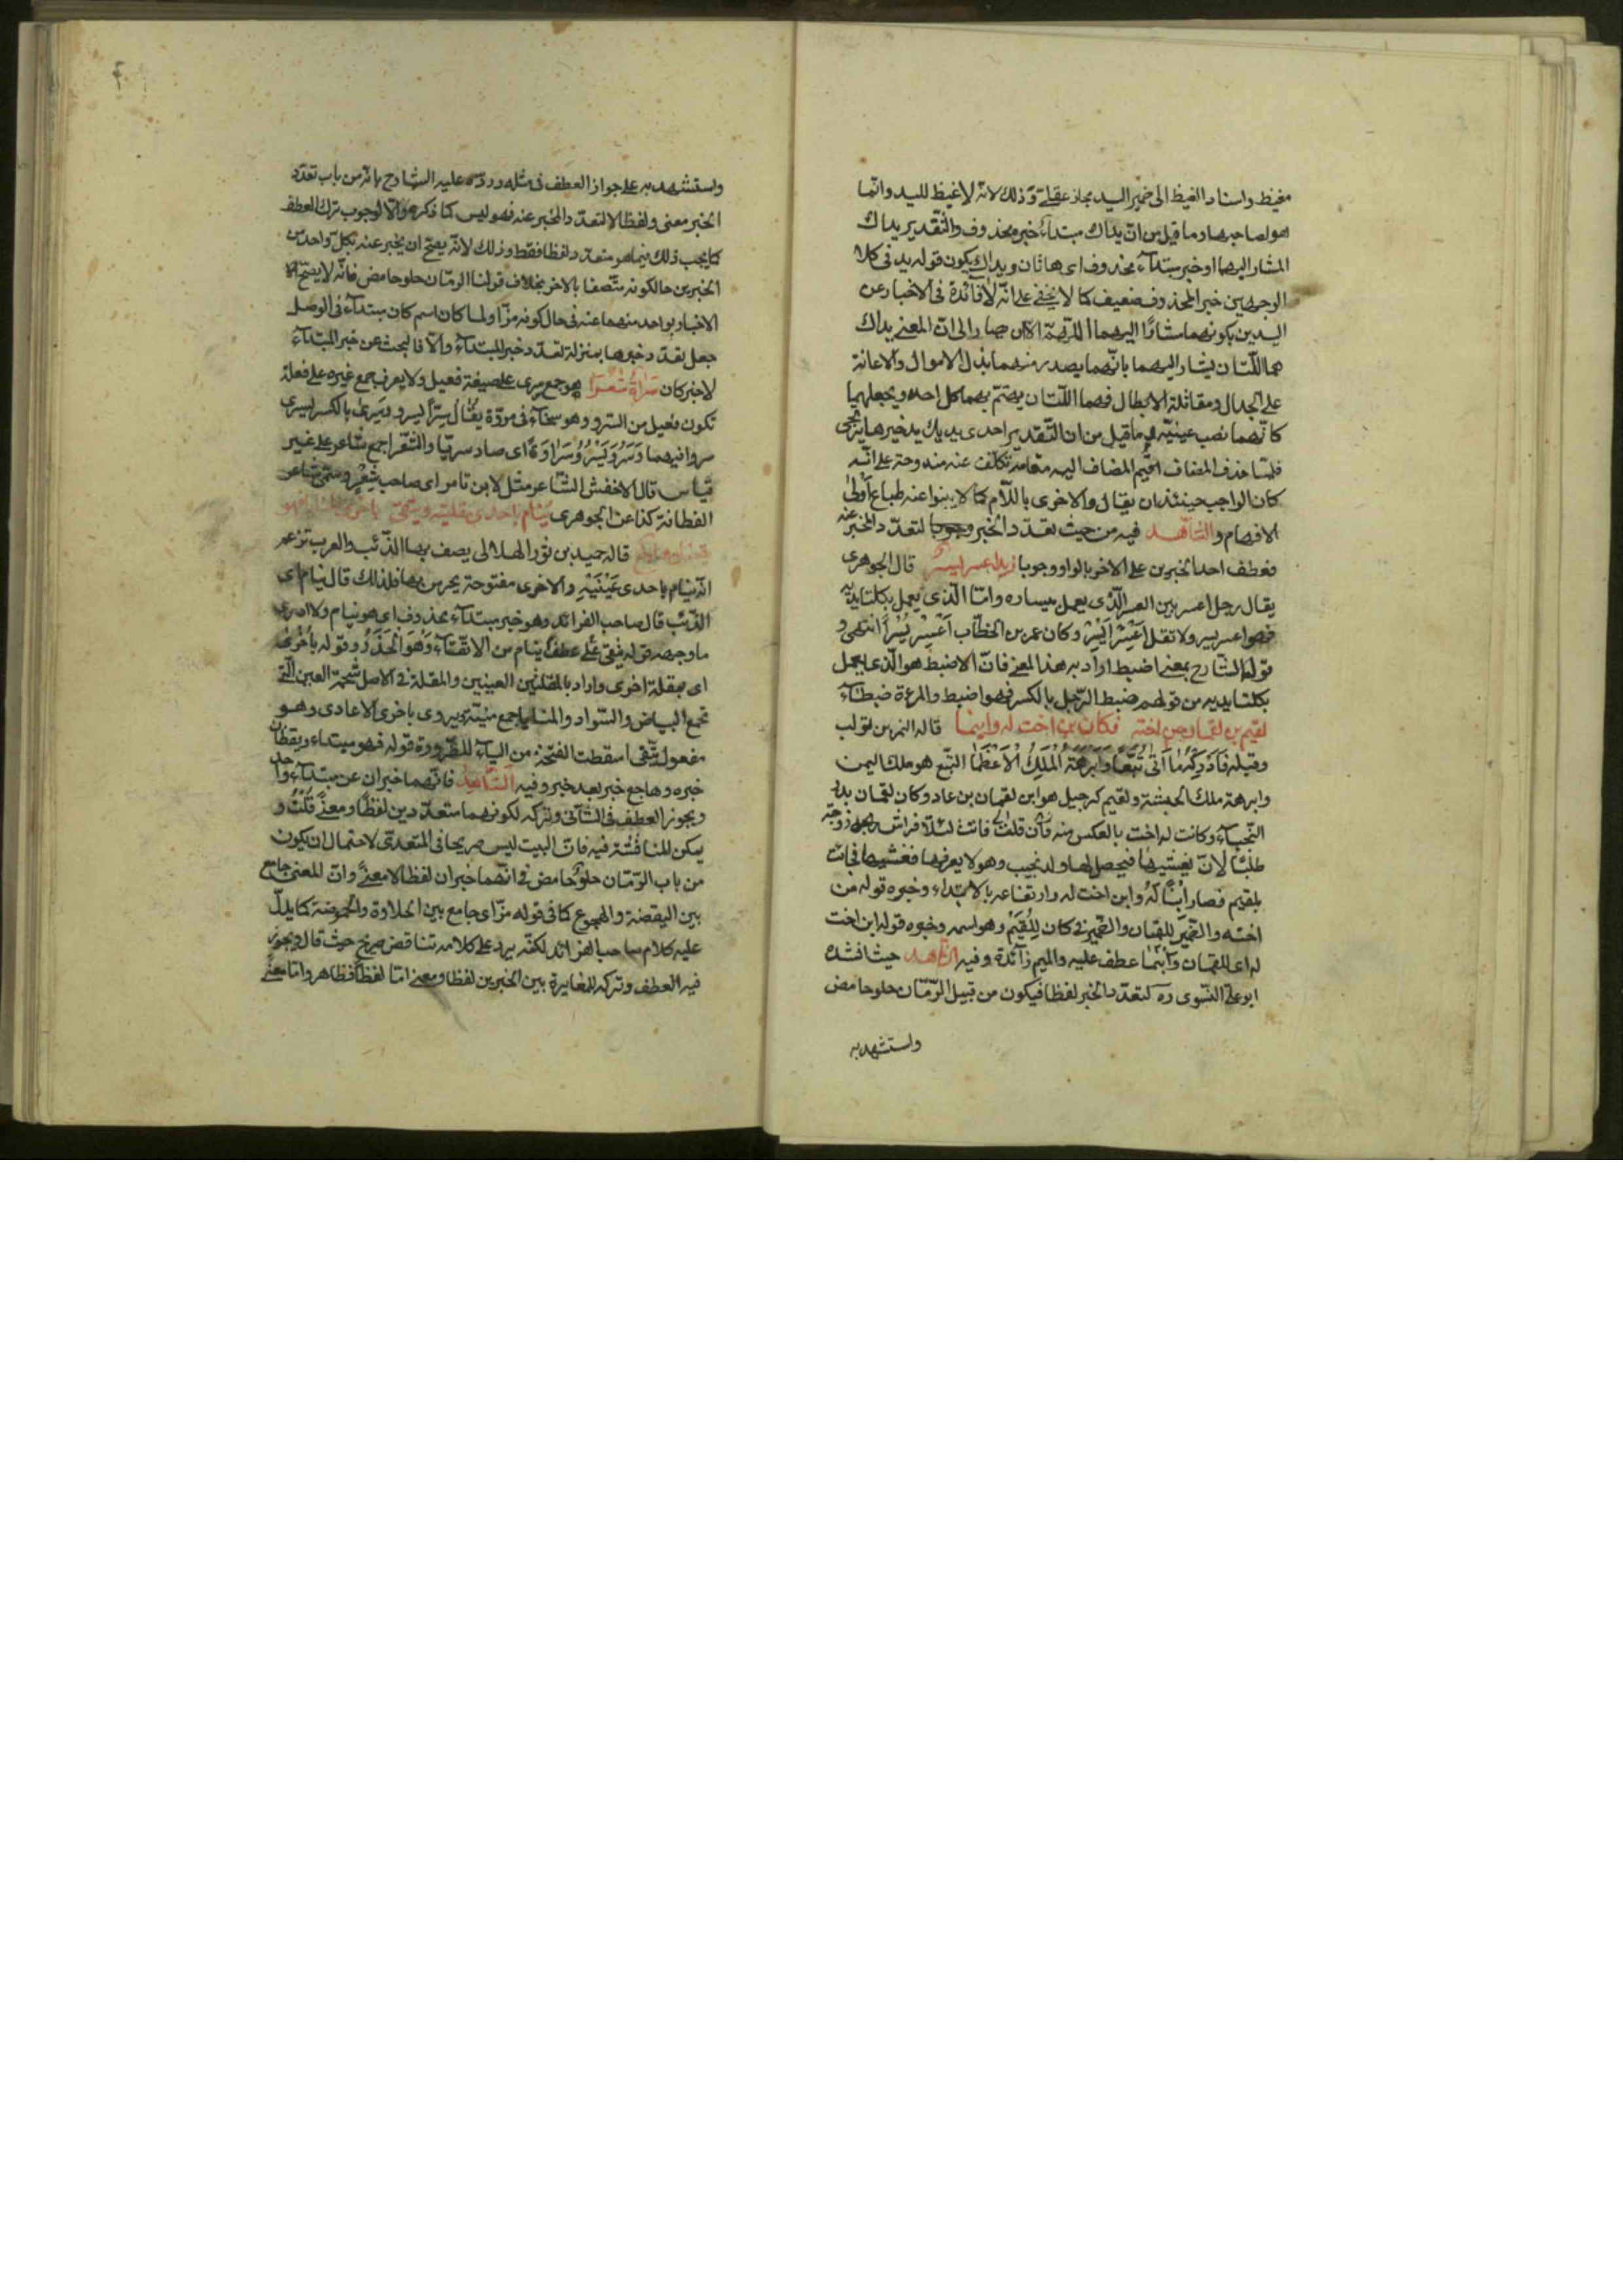 مغيظ واسناد الغيظ الى ضمير اليد مجاز عقلى وذلك لانه لا غيظ لليد وانما
هو لصاحبها وما قيل من ان يداك مبتدأ خبره محذوف والتقدير يداك
المشار اليهما او خبر مبتدأ محذوف اى هاتان ويداك يكون قوله يد فى كلا
الوجهين خبر المحذوف ضعيف كما لا يخفى على انه لا فائدة فى الاخبار عن
اليدين بكونهما مشارًا اليهما اللهم الا ان صار الى ان المعنى يداك
هما اللتان يشار اليهما بانهما يصدر منهما بذل الاموال والاعانة
على الجدال ومقاتلة الابطال فهما اللتان يهتم بهما كل احد ويجعلهما
كانهما نصب عينيه وما قيل من ان التقدير احدى يديك يد خيرها يرتجى
فلما حذف المضاف اقيم المضاف اليه مقامه تكلف عنه مندوحة على انه
كان الواجب حينئذ ان يقال والاخرى باللام كما لا ينبوا عنه طباع اولى
الافهام والشاهد فيه من حيث تعدد الخبر وجوبا لتعدد المخبر عنه
فعطف احد الخبرين على الاخر بالواو وجوبا زيد اعسر ايسر قال الجوهرى
يقال رجل اعسر بين العسر الذى يعمل بيساره واما الذى يعمل بكلتا يديه
فهو اعسر يسر ولا تقل اعسر ايسر وكان عمر بن الخطاب اعسر يسرا انتهى و
قوله الشارح بمعنى اضبط اراد به هذا المعنى فان الاضبط هو الذى يعمل
بكلتا يديه من قولهم ضبط الرجل بالكسر فهو اضبط والمرءة ضبطاء
لقيم بن لقمان من اخته فكان ابن اخت له وابنما قاله النمر بن تولب
وقبله فادركه ما اتى تبعا وابرهة الملك الاعظما التبع هو ملك اليمن
وابرهة ملك الحبشة ولقيم كرجيل هو ابن لقمان بن عاد وكان لقمان يلد
النجباء وكانت له اخت بالعكس منه فاتت ليلا فراش زوجته
طلبًا لان يغشيها فيحصل لها ولد نجيب وهو لا يعرفها فغشيها فجاءت
بلقيم فصار ابنًا له وابن اخت له وارتفاعه بالابتداء وخبره قوله من
اخته والضمير للقمان والضمير فى كان للقيم وهو اسمه وخبره قوله ابن اخت
له اى للقمان وابنما عطف عليه والميم زائدة وفيه الشاهد حيث انشده
ابو على النسوى ره لتعدد الخبر لفظا فيكون من قبيل الرمان حلو حامض
واستشهد به
واستشهد به على جواز العطف فى مثله ورده عليه الشارح بانه من باب تعدد
الخبر معنى ولفظا لا لتعدد المخبر عنه فهو ليس كما ذكره والا لوجب ترك العطف
كما يجب ذلك فيما هو متعدد لفظا فقط وذلك لانه يصح ان يخبر عنه بكل واحد من
الخبرين حالكونه متصفا بالاخر بخلاف قولنا الرمان حلو حامض فانه لا يصح
الاخبار بواحد منهما عنه فى حال كونه مزا ولما كان اسم كان مبتدأ فى الوصل
جعل تعدد خبرها بمنزلة تعدد خبر المبتدأ والا فالبحث عن خبر المبتدأ
لا خبر كان سراة شعرا هو جمع سرى على صيغة فعيل ولا يعرف جمع غيره على فعلة
تكون فعيل من السرو وهو سخاء فى مروّة يقال سرا يسرو وسرى بالكسر يسرى
سروا فيهما وسرو يسرو سراوة اى صار سريا والشعرا جمع شاعر على غير
قياس قال الاخفش الشاعر مثل لابن تامر اى صاحب شعر وسمى شاعر
الفطانة كذا عن الجوهرى ينام باحدى مقلتيه ويتقى باخرى فهو
يقظان هاجع قاله حميد بن ثور الهلالى يصف بها الذئب والعرب تزعم
انه ينام باحدى عينيه والاخرى مفتوحة يحرس بها فلذلك قال ينام اى
الذئب قال صاحب الفرائد وهو خبر مبتدأ محذوف اى هو ينام ولا ادرى
ما وجهه قوله يتقى على عطف ينام من الاتقاء وهو الحذر وقوله باخرى
اى بمقلة اخرى واراد بالمقلتين العينين والمقلة فى الاصل شحمة العين التى
تجمع البياض والسواد والمنايا جمع منية ويروى باخرى الاعادى وهو
مفعول يتقى اسقطت الفتحة من الياء للضرورة قوله فهو مبتداء ويقظان
خبره وهاجع خبر بعد خبر وفيه الشاهد فانهما خبران عن مبتدأ واحد
ويجوز العطف فى الثانى وتركه لكونهما متعددين لفظا ومعنى قلت و
يمكن المناقشة فيه فان البيت ليس صريحا فى المتعدى لاحتمال ان يكون
من باب الرمان حلو حامض فى انهما خبران لفظا لا معنى وان المعنى جامع
بين اليقظة والهجوع كما فى قوله مزا اى جامع بين الحلاوة والحموضة كما يدل
عليه كلام صاحب الفرائد لكنه يرد على كلامه تناقض صريح حيث قال ويجوز
فيه العطف وتركه للمغايرة بين الخبرين لفظا ومعنى اما لفظا فظاهر واما معنى